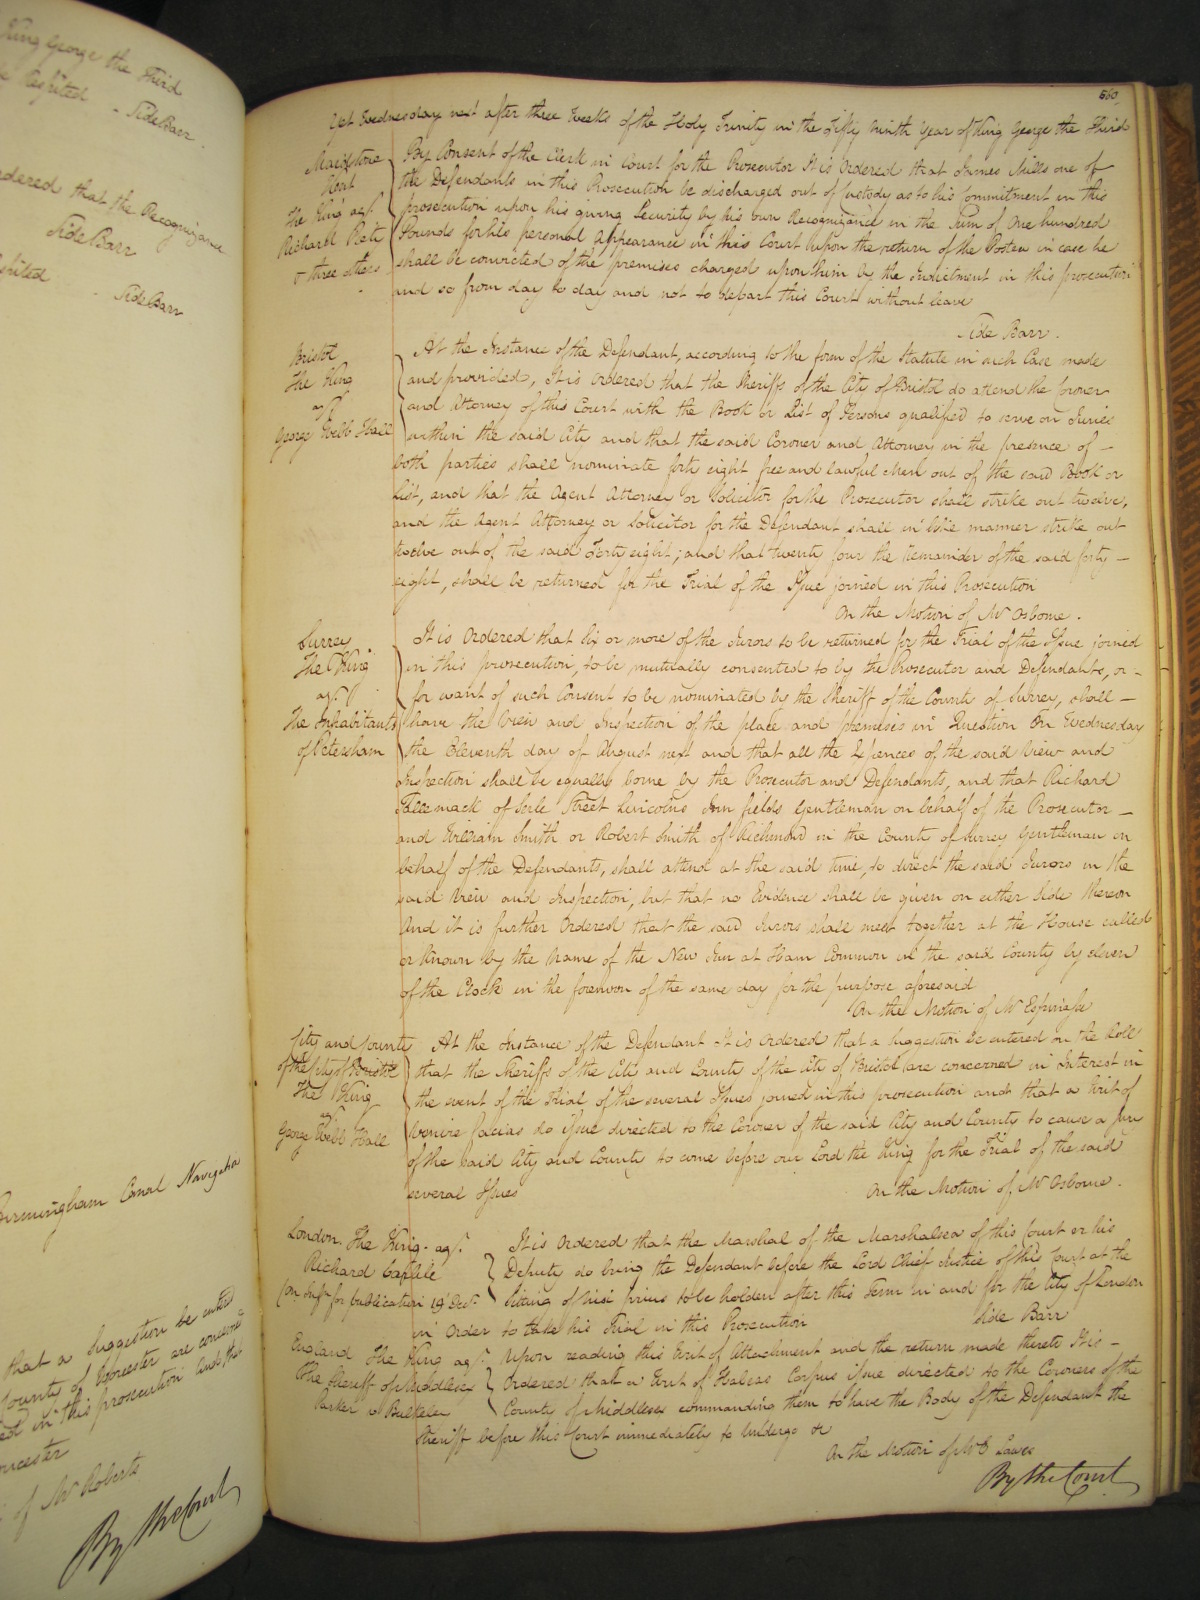 King George the Third
- Side Barr
ordered that the Recognizance
Side Barr
- Side Barr
Birmingham Canal Navigation
that a Suggestion be entered
County of Worcester are concerned
in this prosecution and that
Worcester
of Mr Roberts
By the Court
560
Yet Wednesday next after three Weeks of the Holy Trinity in the Fifty Ninth Year of King George the Third
Maidstone
Kent
The King agt.
Richard
& three others
By Consent of the Clerk in Court for the Prosecutor It is Ordered that James Mills one of
the Defendants in this Prosecution be discharged out of Custody as to his Commitment in this
prosecution upon his giving Security by his own Recognizance in the Sum of One hundred
Pounds for his personal Appearance in this Court upon the return of the Postea in case he
shall be convicted of the premises charged upon him by the Indictment in this prosecution
and so from day to day and not to depart this Court without leave
Side Barr.
Bristol
The King
agt
George Webb Hall
At the Instance of the Defendant, according to the form of the Statute in such Case made
and provided, It is Ordered that the Sheriffs of the City of Bristol do attend the Coroner
and Attorney of this Court with the Book or List of Persons qualified to serve on Juries
within the said City and that the said Coroner and Attorney in the presence of -
both parties shall nominate forty eight free and lawful Men out of the said Book or
List, and that the Agent Attorney or Solicitor for the Prosecutor shall strike out twelve,
and the Agent Attorney or Solicitor for the Defendant shall in like manner strike out
twelve out of the said Forty eight; and that twenty four the remainder of the said forty -
eight, shall be returned for the Trial of the Issue joined in this Prosecution
On the Motion of Mr Osborne.
Surrey
The King
agt.
The Inhabitants
of Petersham
It is Ordered that Six or more of the Jurors to be returned for the Trial of the Issue joined
in this prosecution, to be mutually consented to by the Prosecutor and Defendants, or -
for want of such Consent to be nominated by the Sheriff of the County of Surrey, shall -
have the View and Inspection of the place and premises in Question On Wednesday
the Eleventh day of August next and that all the Expences of the said View and
Inspection shall be equally borne by the Prosecutor and Defendants, and that Richard
Tallemack of Serle Street Lincolns Inn fields Gentleman on behalf of the Prosecutor -
and William Smith or Robert Smith of Richmond in the County of Surrey Gentleman on
behalf of the Defendants, shall attend at the said time, to direct the said Jurors in the
said View and Inspection, but that no Evidence shall be given on either Side thereon
And it is further Ordered that the said Jurors shall meet together at the House called
or Known by the Name of the New Inn at Ham Common in the said County by eleven
of the Clock in the forenoon of the same day for the purpose aforesaid
On the Motion of Mr Espinasse
City and County
of the City of Bristol
The King
agt
George Webb Hall
At the Instance of the Defendant It is Ordered that a Suggestion be entered on the Roll
that the Sheriffs of the City and County of the City of Bristol are concerned in Interest in
the event of the Trial of the several Issues joined in this prosecution and that a Writ of
Venire facias do issue directed to the Coroner of the said City and County to cause a Jury
of the said City and County to come before our Lord the King for the Trial of the said
several Issues
On the Motion of Mr Osborne.
London. The King agt.
Richard Carlile
(on Infn for publication 19 Decr.
It is Ordered that the Marshal of the Marshalsea of this Court or his
Deputy do bring the Defendant before the Lord Chief Justice of this Court at the
Sitting of Nisi prius to be holden after this Term in and for the City of London
in Order to take his Trial in this Prosecution
Side Barr
England The King agt.
The Sheriff of Middlesex
Parker v Bulkeley
Upon reading this Writ of Attachment and the return made thereto It is -
Ordered that a Writ of Habeas Corpus issue directed to the Coroners of the
County of Middlesex commanding them to have the Body of the Defendant the
Sheriff before this Court immediately to undergo &c
On the Motion of Mr E Lawes
By the Court